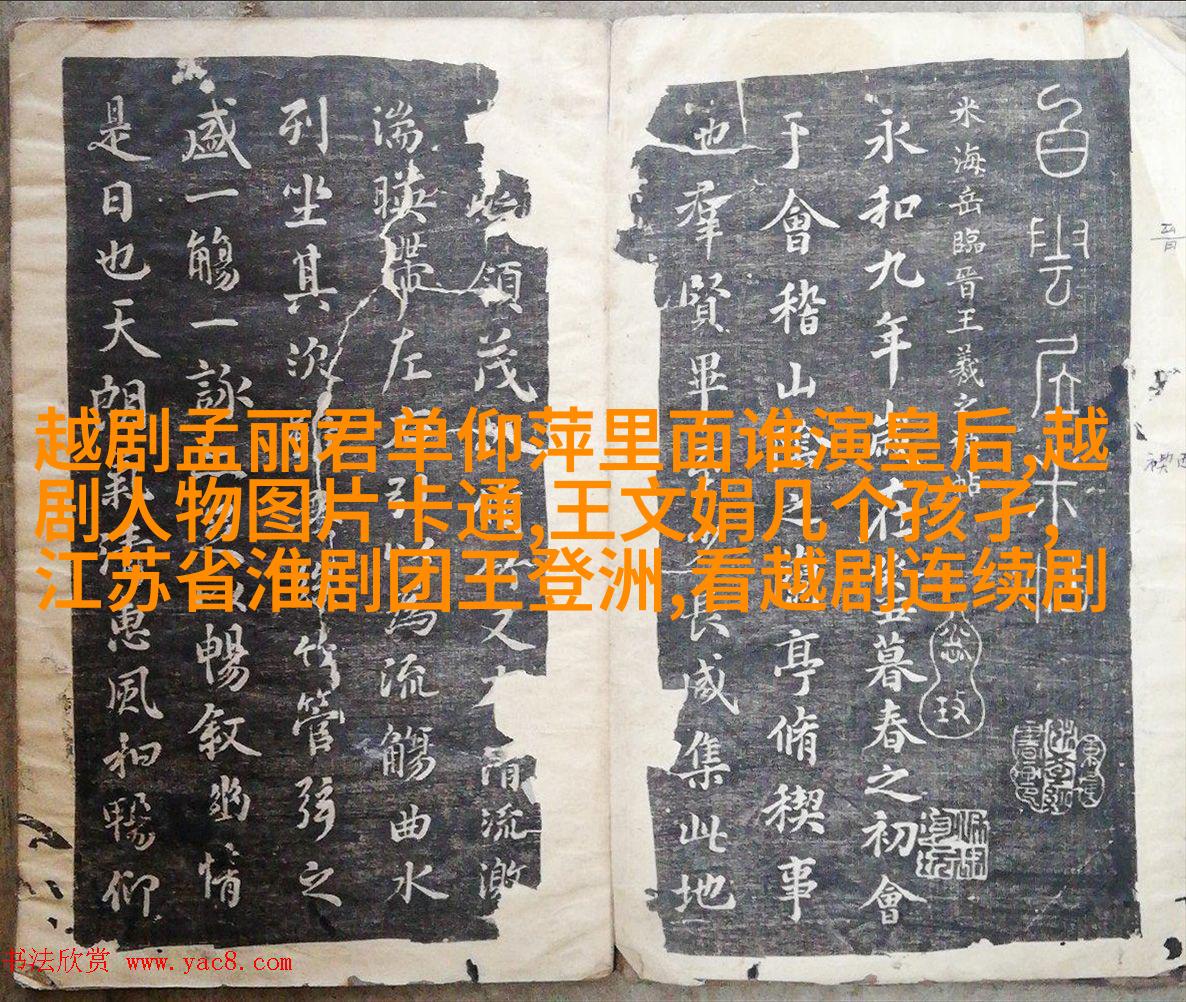 白雲居米
米海岳臨晉王羲之帖
永和九年歲在癸丑暮春之初會
于會稽山陰之蘭亭脩稧事
也羣賢畢至少長咸集此地
領茂林脩竹又有清流激
湍暎帶左右引以為流觴曲水
列坐其次雖無絲竹管弦之
盛一觴一詠亦足以暢叙幽情
是日也天朗氣清惠風和暢仰
越剧孟丽君单仰萍里面谁演皇后,越
剧人物图片卡通,王文娟几个孩子,
江苏省淮剧团王登洲,看越剧连续剧
书法欣赏 www.yac8.com